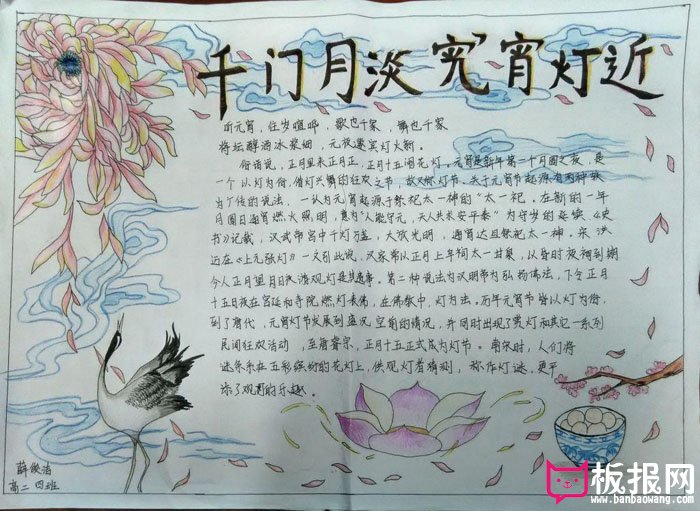 千门月淡 宵灯近
听元宵，往岁喧哗，歌也千家，舞也千家
俗话说，正月里来正月正，正月十五闹花灯。元宵是新年第一个月圆之夜，是
一个以灯为俗，借灯兴舞的狂欢之节，故又称灯节。关于元宵节起源有两种较
为广传的说法，一认为元宵起源于祭祀太一神的“太一祀。在新的一年
月圆日通宵燃火照明，意为“人能守元，天人共长安平泰”为守岁的延续《史
书》记载，汉武帝宫中千灯万盏，大放光明，通宵达旦祭祀太一神。宋 洪
迈在《上元张灯》一文引此说，汉家常以正月上辛祠太一甘泉，以昏时夜祠到明
今人正月望日夜游观灯是其遗事。第二种说法为汉明帝为弘扬佛法，下令正月
十五日夜在宫廷和寺院燃灯表佛，在佛教中，灯为法，历年元宵节皆以灯为俗，
到了唐代，元宵灯节发展到盛况空前的情况，并同时出现了赏灯和其它一系列
民间狂欢活动，至唐睿宗，正月十五正式成为灯节。南宋时，人们将
谜条系在五彩缤纷的花灯上，供观灯者猜测，称作灯谜，更平
添了观看的乐趣。
高二 四班
板报网
www.banbaowang.com